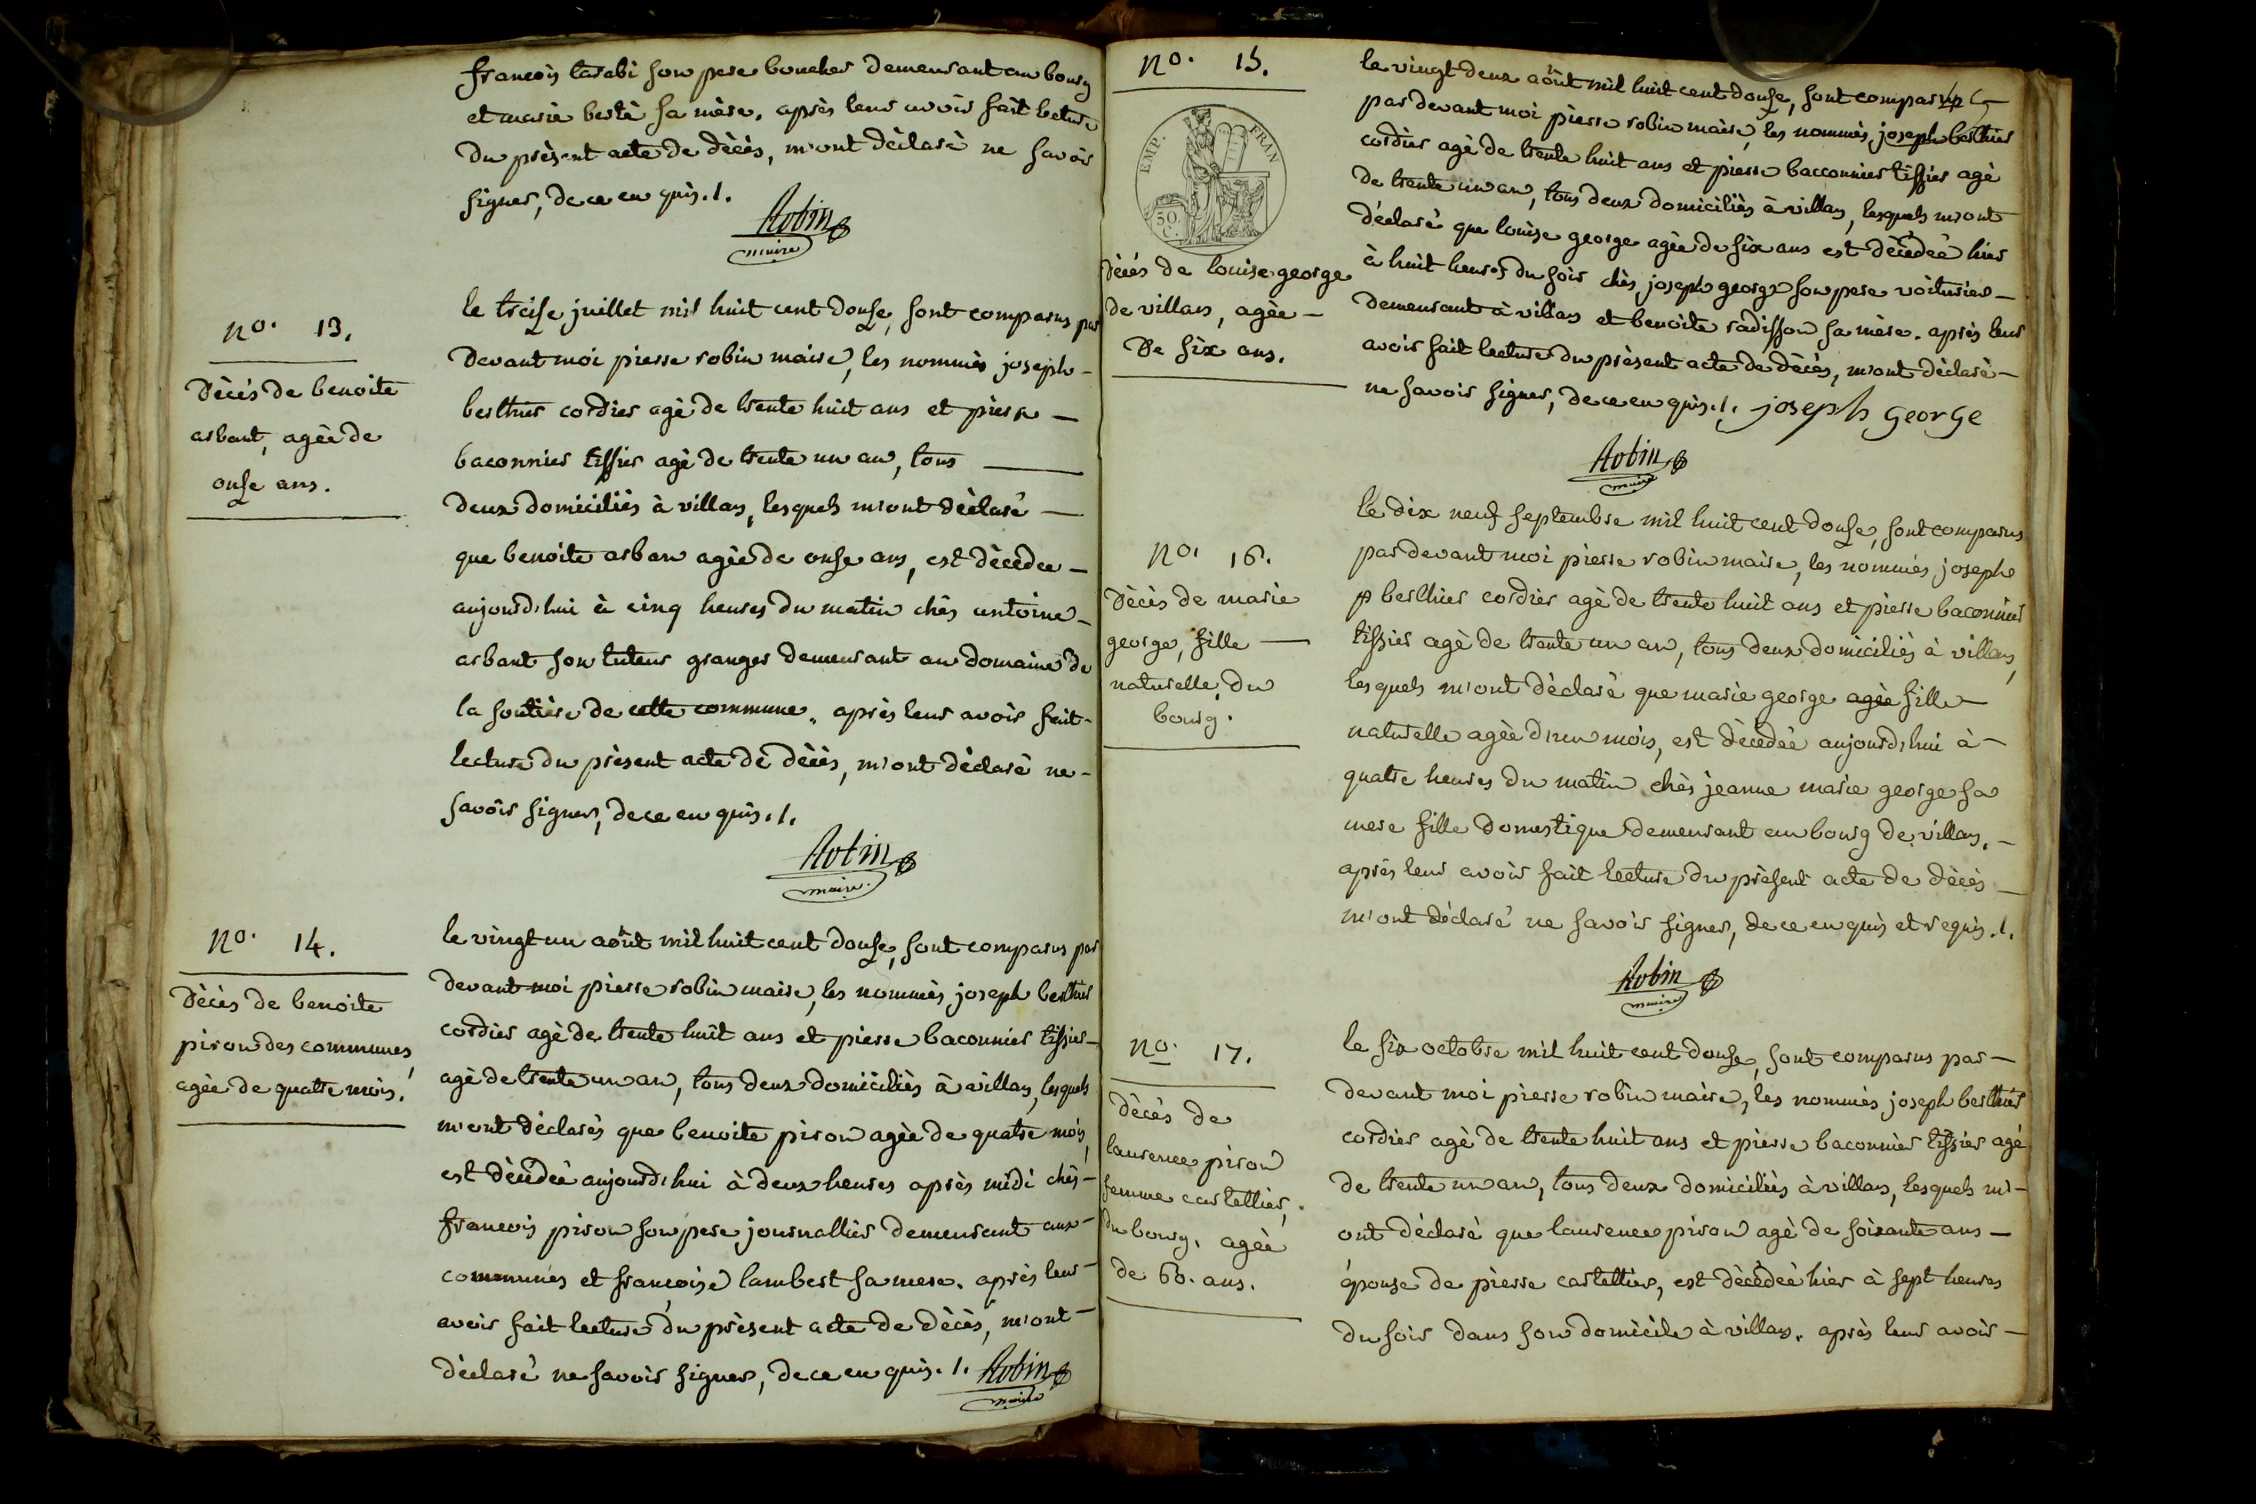 francois tarabi son pere boucher demeurant au bourg
et marie berte sa mère. après leur avoir fait lecture
du prèsent acte de dècès, m'ont dèclarè ne savoir
signer, de ce en quis./.
Robin
maire
no. 13.
Dècès de benoite
arbant, agèe de
onse ans.
le treise juillet mil huit cent douse, sont comparus par
devant moi pierre robin maire, les nommès joseph
berthier cordier agè de trente huit ans et pierre
baconnier tissier agè de trente un an, tous
deux domiciliès à villars, lesquels m'ont dèclarè
que benoite arban agèe de onse ans, est dècèdee
aujourd'hui à cinq heures du matin chès antoine
arbant son tuteur granger demeurant au domaine de
la soutière de cette commune. après leur avoir fait
lecture du prèsent acte de dècès, m'ont dèclarè ne
savoir signer, de ce en quis./.
Robin
maire.
no. 14.
Dècès de benoite
piron des communes,
agèe de quatre mois.
le vingt un août mil huit cent douse, sont comparus par
devant moi pierre robin maire, les nommès joseph berthier
cordier agè de trente huit ans et pierre baconnier tissier
agè de trente un an, tous deux domiciliès à villars, lesquels
m'ont dèclarès que benoite piron agèe de quatre mois,
est dècèdeè aujourd'hui à deux heures après midi chès
francois piron son pere journallier demeurant aux
communes et francoise lambert sa mere. après leur
avoir fait lecture du prèsent acte de dècès, m'ont
dèclarè ne savoir signer, de ce en quis./. Robin
maire
no. 15.
EMP. FRAN
50 C.
Dècès de louise george
de villars, agèe
De six ans.
le vingt deux août mil huit cent douse, sont comparus
par devant moi pierre robin maire, les nommès joseph berthier
cordier agè de trente huit ans et pierre bacconnier tissier agè
de trente un an, tous deux domiciliès à villars, lesquels m'ont
dèclarè que louise george agèe de six ans est dècèdeè hier
à huit heures du soir chès joseph george son pere voiturier
demeurant à villars et benoite radisson sa mère. après leur
avoir fait lecture du prèsent acte de dècès, m'ont dèclarè
ne savoir signer, de ce en quis./. joseph george
Robin
maire
no. 16.
Dècès de marie
george, fille
naturelle, du
bourg.
le dix neuf septembre mil huit cent douse, sont comparus
par devant moi pierre robin maire, les nommés joseph
p berthier cordier agè de trente huit ans et pierre baconnier
tissier agè de trente un an, tous deux domiciliès à villars,
lesquels m'ont dèclarè que marie george agèe fille
naturelle agèe d'un mois, est dècèdeè aujourd'hui à
quatre heures du matin chès jeanne marie george sa
mere fille domestique demeurant au bourg de villars.
après leur avoir fait lecture du prèsent acte de dècès
m'ont dèclarè ne savoir signer, de ce en quis et requis./.
Robin
maire
no. 17.
dècès de
laurence piron
femme cartellier,
du bourg. agèe
de 60. ans.
le six octobre mil huit cent douse, sont comparus par
devant moi pierre robin maire, les nommés joseph berthier
cordier agè de trente huit ans et pierre baconnier tissier agè
de trente un an, tous deux domiciliès à villars, lesquels m'
ont dèclarè que laurence piron agè de soixante ans
épouse de pierre cartellier, est dècèdeè hier à sept heures
du soir dans son domicile à villars. après leur avoir